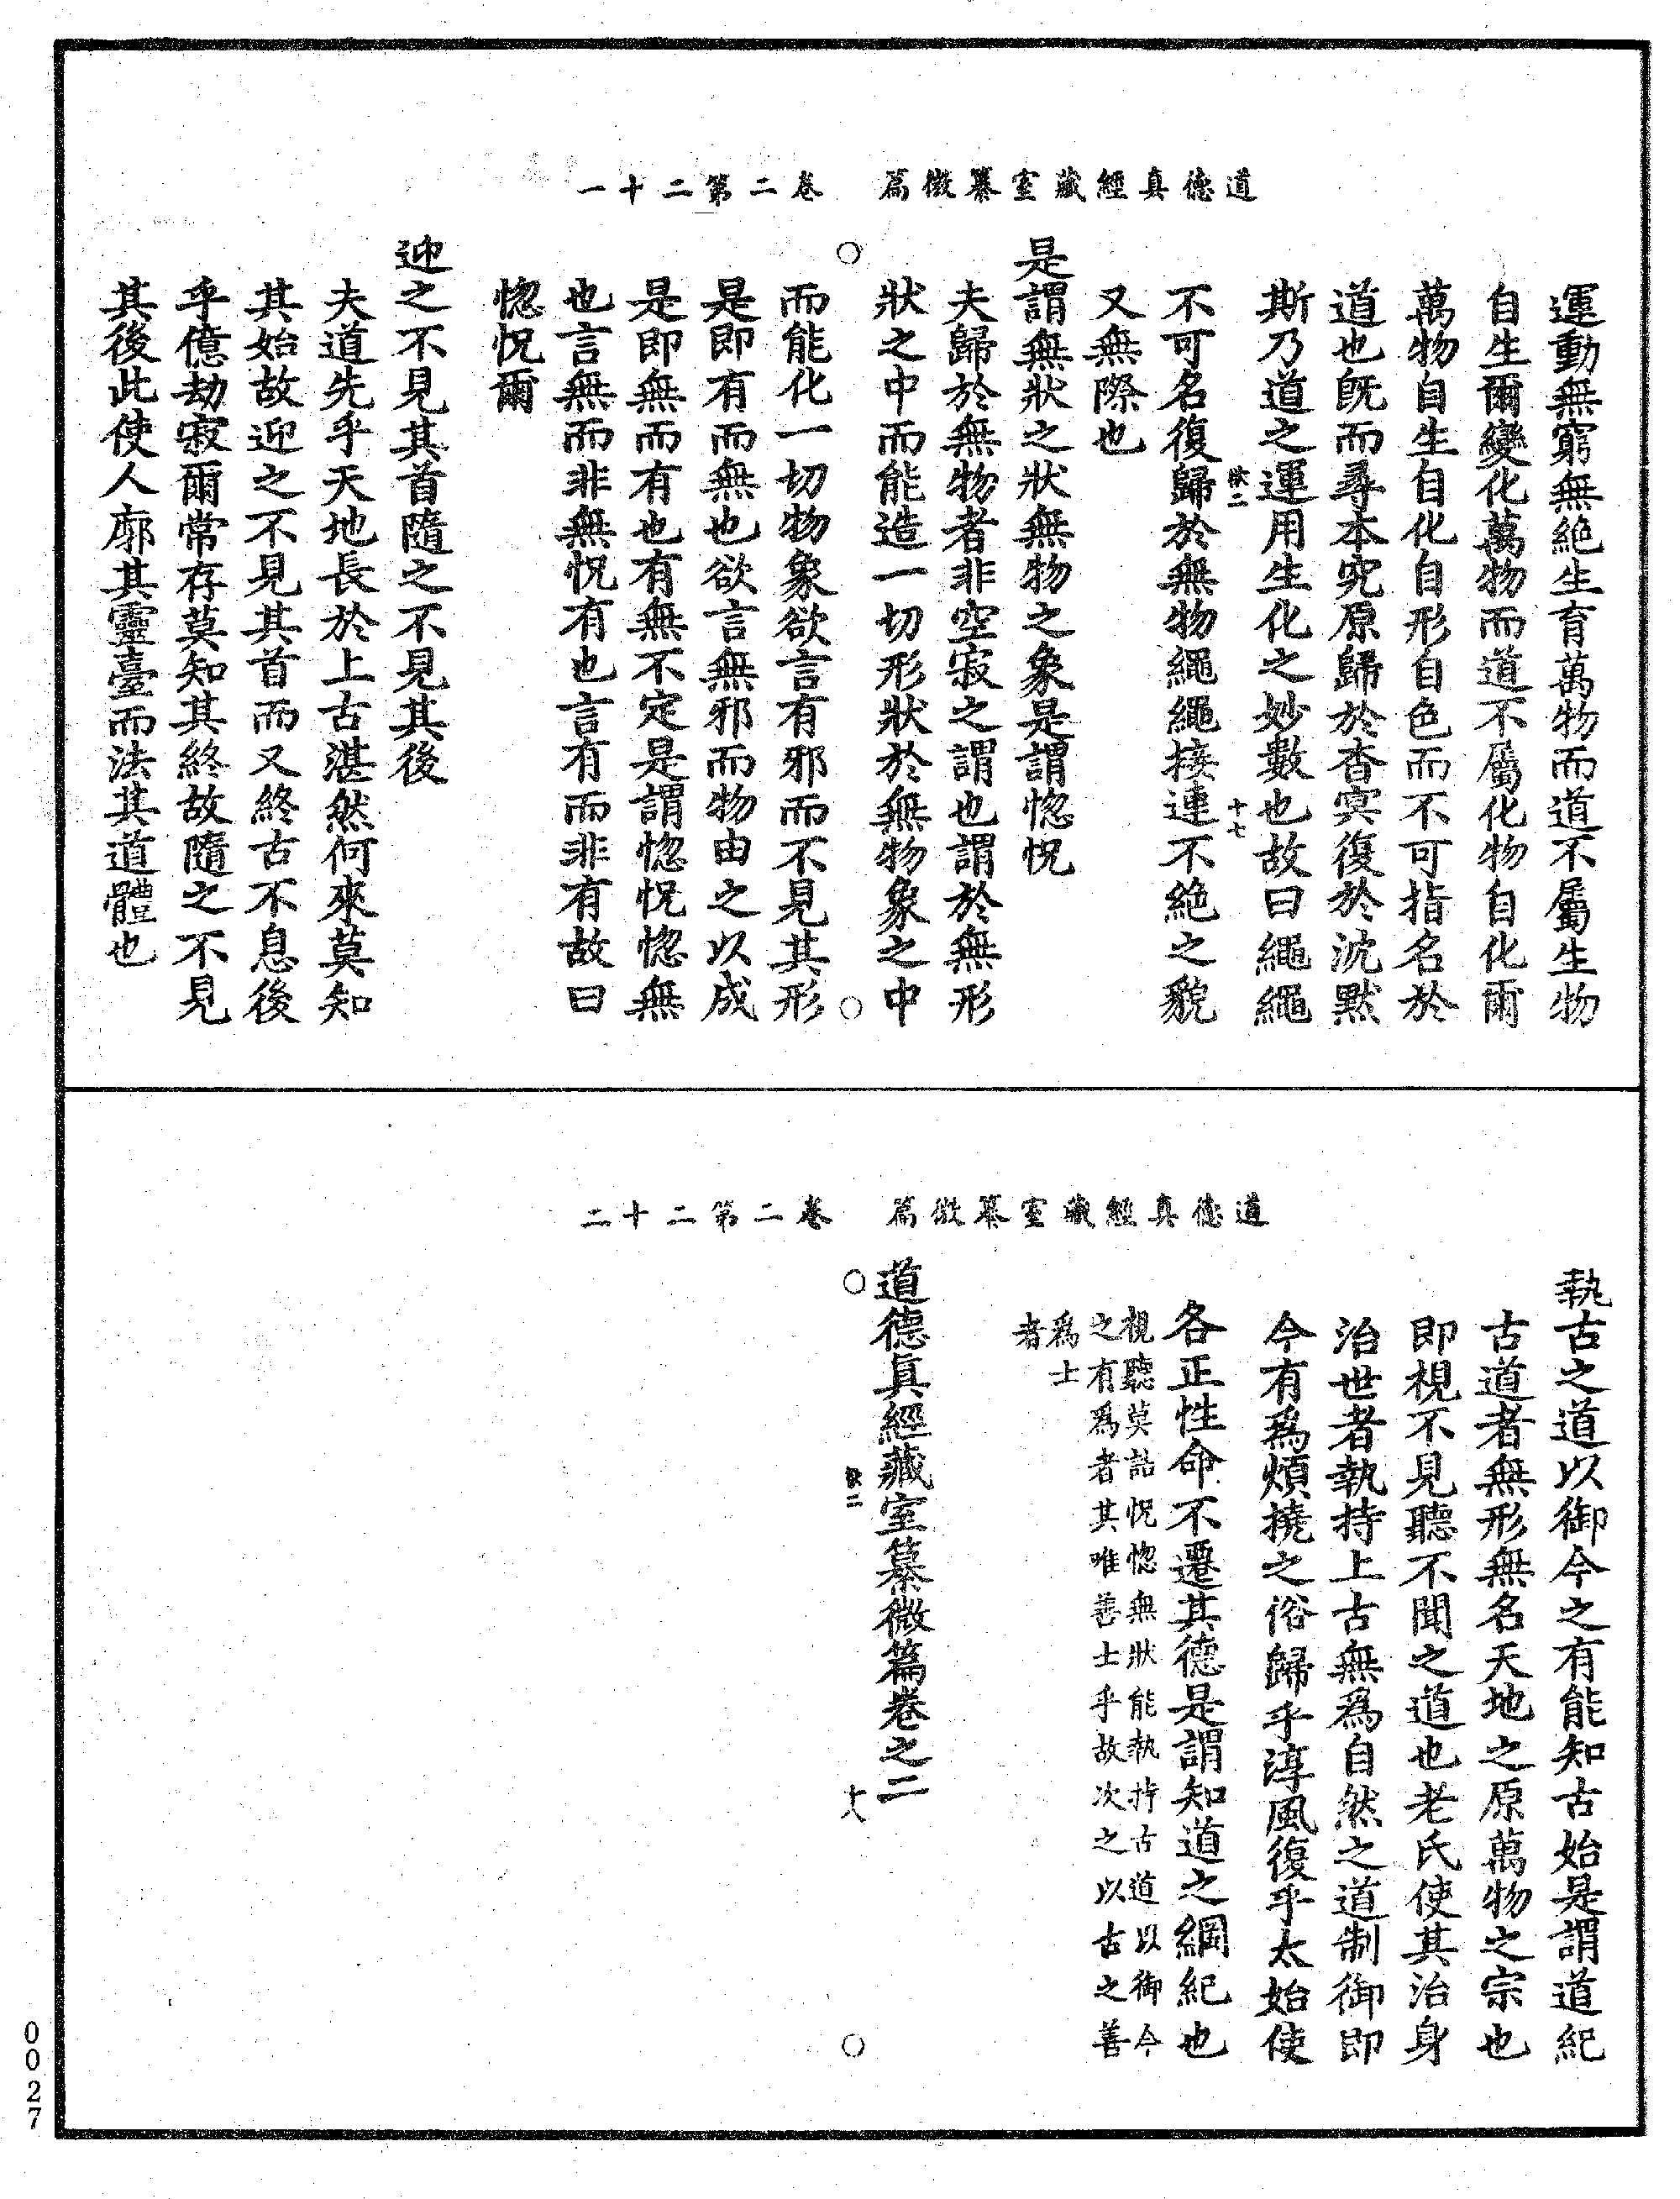 道德真經藏室纂微篇　卷二第二十一
運動無窮無絶生育萬物而道不屬生物
自生爾變化萬物而道不屬化物自化爾
萬物自生自化自形自色而不可指名於
道也旣而尋本究原歸於杳冥復於沈默
斯乃道之運用生化之妙數也故曰繩繩
欲二　十七
不可名復歸於無物繩繩接連不絶之貌
又無際也
是謂無狀之狀無物之象是謂惚怳
夫歸於無物者非空寂之謂也謂於無形
狀之中而能造一切形狀於無物象之中
○　○
而能化一切物象欲言有邪而不見其形
是即有而無也欲言無邪而物由之以成
是即無而有也有無不定是謂惚怳惚無
也言無而非無怳有也言有而非有故曰
惚怳爾
迎之不見其首隨之不見其後
夫道先乎天地長於上古湛然何來莫知
其始故迎之不見其首而又終古不息後
乎億劫寂爾常存莫知其終故隨之不見
其後此使人廓其靈臺而法其道體也
道德真經藏室纂微篇　卷二第二十二
執古之道以御今之有能知古始是謂道紀
古道者無形無名天地之原萬物之宗也
即視不見聽不聞之道也老氏使其治身
治世者執持上古無爲自然之道制御即
今有爲煩撓之俗歸乎淳風復乎太始使
各正性命不遷其德是謂知道之綱紀也
視聽莫詰怳惚無狀能執持古道以御今
之有爲者其唯善士乎故次之以古之善
爲士
者
道德眞經藏室纂微篇卷之二
○　欲二　十八　○
0027